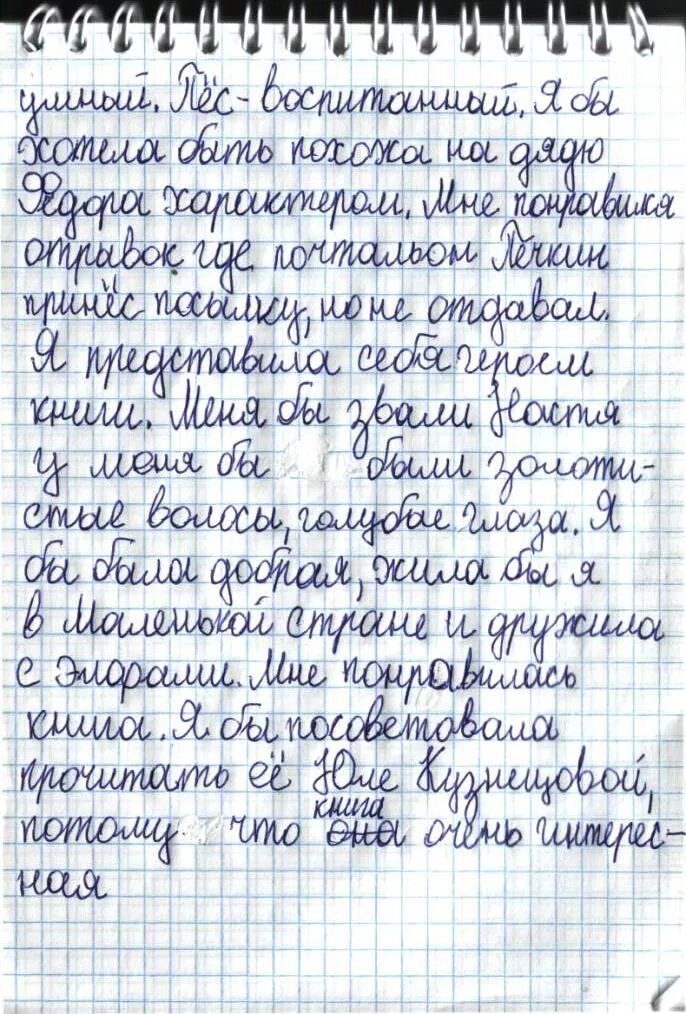 умный. Пёс - воспитанный. Я бы
хотела быть похожа на дядю
Фёдора характером. Мне понравился
отрывок где почтальон Печкин
принёс посылку, но не отдавал.
Я представила себя героем
книги. Меня бы звали Настя
у меня бы были золоти-
стые волосы, голубые глаза. Я
бы была добрая, жила бы я
в Маленькой стране и дружила
с Эльфами. Мне понравилась
книга. Я бы посоветовала
прочитать её Юле Кузнецовой,
книга
потому что она очень интерес-
ная